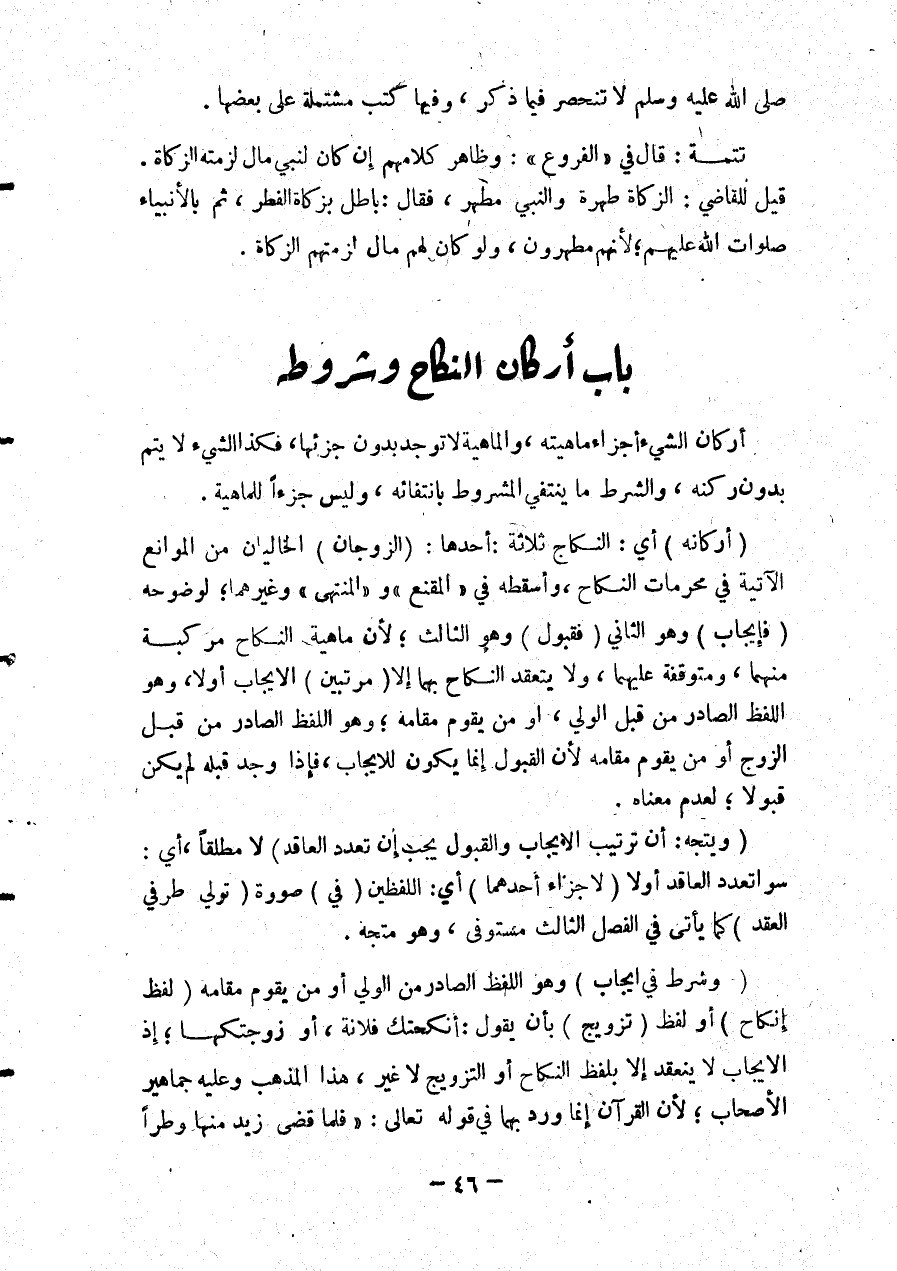 صلى الله عليه وسلم لا تنحصر فيما ذكر ، وفيها كتب مشتملة على بعضها .
تتمــة : قال في « الفروع » : وظاهر كلامهم إن كان لنبي مال لزمته الزكاة .
قيل للقاضي : الزكاة طهرة والنبي مطهر ، فقال : باطل بزكاة الفطر ، ثم بالأنبياء
صلوات الله عليهـم ؛ لأنهم مطهرون ، ولو كان لهم مال لزمتهم الزكاة .
باب أركان النكاح وشروطه
أركان الشيء أجزاء ماهيته ، والماهية لا توجد بدون جزئها ، فكذا الشيء لا يتم
بدون ركنه ، والشرط ما ينتفي المشروط بانتفائه ، وليس جزءاً للماهية .
( أركانه ) أي : النـكاح ثلاثة : أحدها : ( الزوجان ) الخاليان من الموانع
الآتية في محرمات النـكاح ، وأسقطه في « المقنع » و « المنتهى » وغيرهما ؛ لوضوحه
( فإيجاب ) وهو الثاني ( فقبول ) وهو الثالث ؛ لأن ماهية النـكاح مركبـة
منهما ، ومتوقفة عليهما ، ولا ينعقد النـكاح بهما إلا ( مرتبين ) الايجاب أولا ، وهو
اللفظ الصادر من قبل الولي ، او من يقوم مقامه ؛ وهو اللفظ الصادر من قبـل
الزوج أو من يقوم مقامه لأن القبول إنما يكون للايجاب ، فإذا وجد قبله لم يكن
قبولا ؛ لعدم معناه .
( ويتجه : أن ترتيب الايجاب والقبول يجب إن تعدد العاقد ) لا مطلقاً ، أي :
سوا تعدد العاقد أولا ( لاجزاء أحدهما ) أي : اللفظين ( في ) صورة ( تولي طرفي
العقد ) كما يأتى في الفصل الثالث مستوفى ، وهو متجه .
( وشرط في ايجاب ) وهو اللفظ الصادر من الولي أو من يقوم مقامه ( لفظ
إنكاح ) أو لفظ ( تزويج ) بأن يقول : أنكحتك فلانة ، أو زوجتكهـا ؛ إذ
الايجاب لا ينعقد إلا بلفظ النكاح أو التزويج لا غير ، هذا المذهب وعليه جماهير
الأصحاب ؛ لأن القرآن إنما ورد بهما في قوله تعالى : « فلما قضى زيد منها وطراً
- ٤٦ -